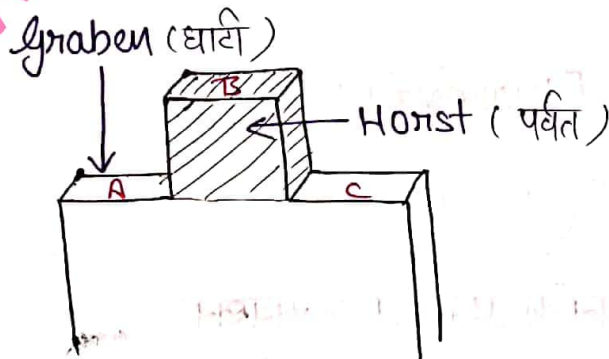 Graben (घाटी)
B
Horst (पर्वत)
A
C